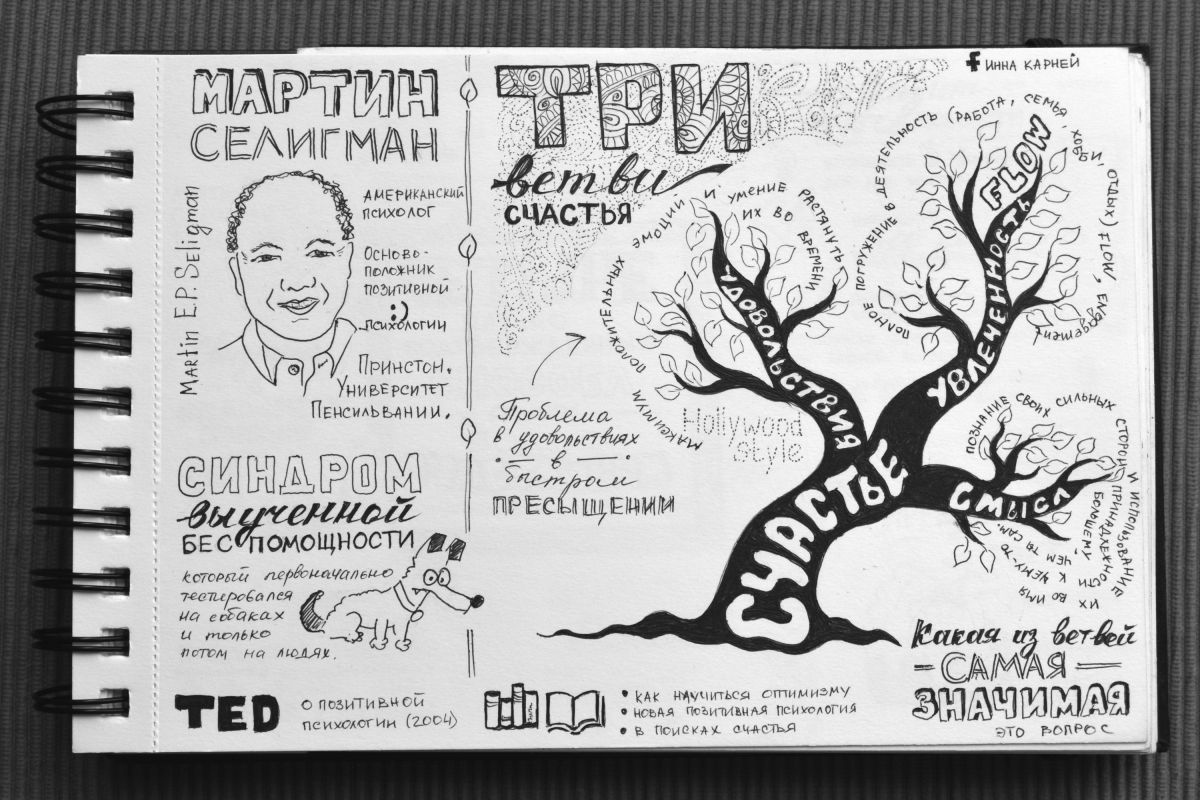 МАРТИН
СЕЛИГМАН
Martin E.P. Seligman
АМЕРИКАНСКИЙ
ПСИХОЛОГ
ОСНОВО-
ПОЛОЖНИК
ПОЗИТИВНОЙ
:)
ПСИХОЛОГИИ
ПРИНСТОН.
УНИВЕРСИТЕТ
ПЕНСИЛЬВАНИИ.
СИНДРОМ
выученной
БЕСПОМОЩНОСТИ
который первоначально
тестировался
на собаках
и только
потом на людях.
TED
О ПОЗИТИВНОЙ
ПСИХОЛОГИИ (2004)
f ИННА КАРНЕЙ
ТРИ
ветви
СЧАСТЬЯ
Проблема
в удовольствиях
в
быстром
ПРЕСЫЩЕНИИ
МАКСИМУМ ПОЛОЖИТЕЛЬНЫХ ЭМОЦИЙ И УМЕНИЕ РАСТЯНУТЬ
ИХ ВО ВРЕМЕНИ
УДОВОЛЬСТВИЯ
Hollywood
Style
ПОЛНОЕ ПОГРУЖЕНИЕ В ДЕЯТЕЛЬНОСТЬ (РАБОТА, СЕМЬЯ, ХОББИ, ОТДЫХ) FLOW, ENGAGEMENT
FLOW
УВЛЕЧЕННОСТЬ
ПОЗНАНИЕ СВОИХ СИЛЬНЫХ СТОРОН И ИСПОЛЬЗОВАНИЕ
ИХ ВО ИМЯ
ПРИНАДЛЕЖНОСТИ К ЧЕМУ-ТО
БОЛЬШЕМУ, ЧЕМ ТЫ САМ.
СМЫСЛ
СЧАСТЬЕ
• КАК НАУЧИТЬСЯ ОПТИМИЗМУ
• НОВАЯ ПОЗИТИВНАЯ ПСИХОЛОГИЯ
• В ПОИСКАХ СЧАСТЬЯ
Какая из ветвей
САМАЯ
ЗНАЧИМАЯ
ЭТО ВОПРОС